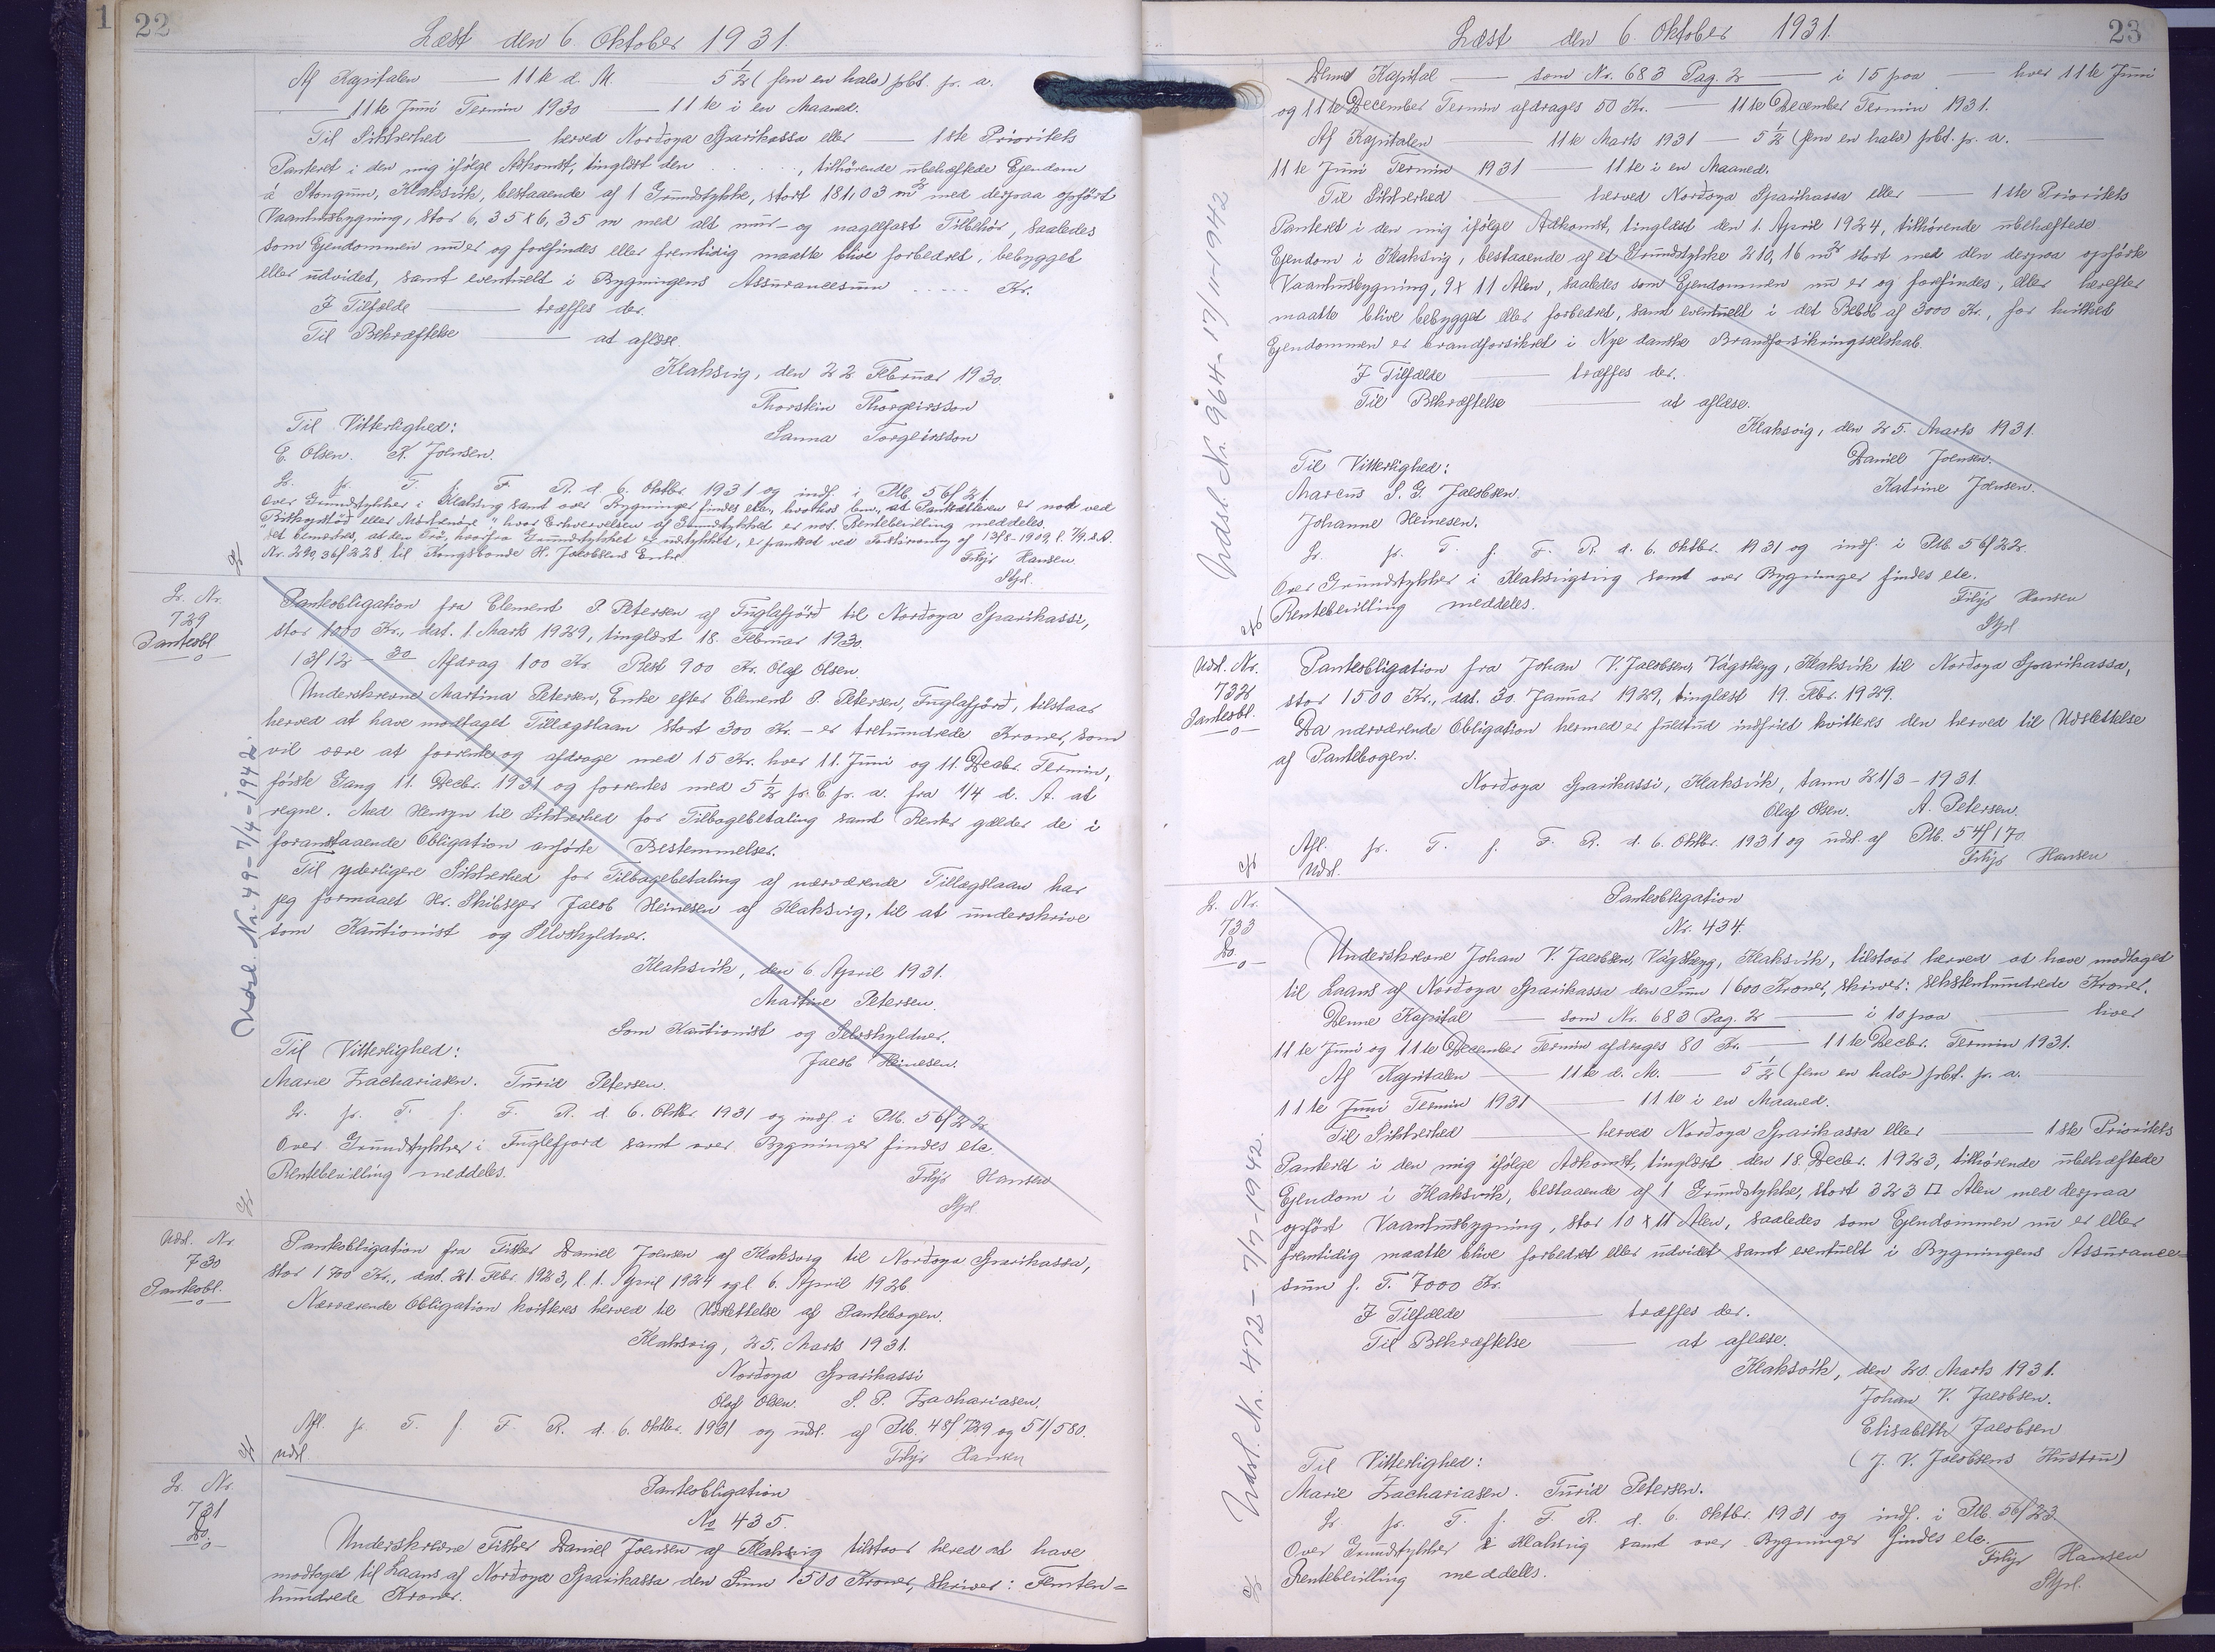 1
22
Læst den 6. Oktober 1931.
Af Kapitalen — 11te d. M. 5 1/2 (fem en halv) pbt. pr. a.
— 11te Juni Termin 1930 — 11te i en Maaned.
Til Sikkerhed — herved Norðoya Sparikassa eller — 1ste Prioritets
Panteret i den mig ifölge Adkomst, tinglæst den . . . . . , tilhörende ubehæftede Ejendom
á Stongum, Klaksvík, bestaaende af 1 Grundstykke, stort 181,03 m² med derpaa opfört
Vaaanhusbygning, stor 6,35 x 6,35 m med alt mur- og nagelfast Tilbehör, saaledes
som Ejendommen nu er og forefindes eller fremtidig maatte blive forbedret, bebygget
eller udvidet, samt eventuelt i Bygningens Assurancesum ..... Kr.
I Tilfælde — træffes der.
Til Bekræftelse — at aflæse.
Klaksvig, den 22 Februar 1930.
Thorstein Thorgeirsson
Sanna Torgeirsson
Til Vitterlighed:
E. Olsen. K. Joensen.
L. pr. T. f. F. R. d. 6. Oktbr. 1931 og indf. i Ptb. 56f 21.
Over Grundstykker i Klaksvig samt over Bygninger findes etc.
Rentebevilling meddeles.
Det bemærkes, at den
Nr. 290, 36f 228 til Kongsbonde H. Jacobsens Enke.
Filip Hansen
Stpl.
L. Nr.
729
Panteobl.
Panteobligation fra Clement P. Petersen af Fuglafjörð til Norðoya Sparikassi,
stor 1000 Kr., dat. 1. Marts 1929, tinglæst 18. Februar 1930.
13/12 - 30 Afdrag 100 Kr. Rest 900 Kr. Olaf Olsen.
Underskrevne Martina Petersen, Enke efter Clement P. Petersen, Fuglafjörð, tilstaar
herved at have modtaget Tillægslaan stort 300 Kr. – er trehundrede Kroner, som
vil være at forrente og afdrage med 15 Kr. hver 11. Juni og 11. Decbr. Termin,
förste Gang 11. Decbr. 1931 og forrentes med 5 1/2 pr. C pr. a. fra 1/4 d. A. at
regne. Med Hensyn til Sikkerhed for Tilbagebetaling samt Renter gælder de i
foranstaaende Obligation anförte Bestemmelser.
Til yderligere Sikkerhed for Tilbagebetaling af nærværende Tillægslaan har
jeg formaaet Hr. Skibsejer Jacob Heinesen af Klaksvig, til at underskrive
som Kautionist og Selvskyldner.
Klaksvík, den 6. April 1931.
Martine Petersen.
Som Kautionist og Selvskyldner.
Jacob Heinesen.
Til Vitterlighed:
Marie Zachariasen. Turid Petersen.
L. pr. T. f. F. R. d. 6. Oktbr. 1931 og indf. i Ptb. 56f 22.
Over Grundstykker i Fuglefjord samt over Bygninger findes etc.
Rentebevilling meddeles.
Filip Hansen
Stpl.
Udsl. Nr. 49 - 7/4 - 1942.
Udsl. Nr.
730
Panteobl.
Panteobligation fra Fisker Daniel Joensen af Klaksvig til Norðoya Sparikassa,
stor 1700 Kr., dat. 21. Febr. 1923, l. 1. April 1924 og l. 6. April 1926
Nærværende Obligation kvitteres herved til Udslettelse af Pantebogen.
Klaksvig, 25. Marts 1931.
Norðoya Sparikassi
Olaf Olsen. S. P. Zachariasen.
Afl. pr. T. f. F. R. d. 6. Oktbr. 1931 og udsl. af Ptb. 48f 729 og 51/580.
Udsl.
Filip Hansen
L. Nr.
731
Do.
Panteobligation
No 435.
Underskrevne Fisker Daniel Joensen af Klaksvig tilstaar herved at have
modtaget til Laans af Norðoya Sparikassa den Sum 1500 Kroner, skriver: Femten-
hundrede Kroner.
23
Læst den 6. Oktober 1931.
Denne Kapital — som Nr. 683 Pag. 2 — i 15 paa — hver 11te Juni
og 11te December Termin afdrages 50 Kr. — 11te December Termin 1931.
Af Kapitalen — 11te Marts 1931 — 5 1/2 (fem en halv) pbt. pr. a. —
11te Juni Termin 1931 — 11te i en Maaned.
Til Sikkerhed — herved Norðoya Sparikassa eller — 1ste Prioritets
Panteret i den mig ifölge Adkomst, tinglæst den 1. April 1924, tilhörende ubehæftede
Ejendom i Klaksvig, bestaaende af et Grundstykke 210,16 m² stort med den derpaa opförte
Vaaanhusbygning, 9 x 11 Alen, saaledes som Ejendommen nu er og forefindes, eller herefter
maatte blive bebygget eller forbedret, samt eventuelt i det Belöb af 3000 Kr., for hvilket
Ejendommen er brandforsikret i Nye danske Brandforsikringsselskab.
I Tilfælde — træffes der.
Til Bekræftelse — at aflæse.
Klaksvig, den 25. Marts 1931.
Daniel Joensen.
Katrine Joensen.
Til Vitterlighed:
Marcus S. G. Jacobsen.
Johanne Heinesen.
L. pr. T. f. F. R. d. 6. Oktbr. 1931 og indf. i Ptb. 56f 22.
Over Grundstykker i Klaksvig samt over Bygninger findes etc.
Rentebevilling meddeles.
Filip Hansen
Stpl.
Udsl. Nr. 964 - 17/11 - 1942
Udsl. Nr.
732
Panteobl.
Panteobligation fra Johan V. Jacobsen, Vágsheyg, Klaksvík til Norðoya Sparikassa,
stor 1500 Kr., dat. 30. Januar 1929, tinglæst 19. Febr. 1929.
Da nærværende Obligation hermed er fuldtud indfriet kvitteres den herved til Udslettelse
af Pantebogen.
Norðoya Sparikassi, Klaksvík, tann 21/3 - 1931
Olaf Olsen. A. Petersen.
Afl. pr. T. f. F. R. d. 6. Oktbr. 1931 og udsl. af Ptb. 54f 170
Udsl.
Filip Hansen
L. Nr.
733
Do.
Panteobligation
Nr. 434.
Underskrevne Johan V. Jacobsen, Vágsheyg, Klaksvík, tilstaar herved at have modtaget
til Laans af Norðoya Sparikassa den Sum 1600 Kroner, skriver: sekstenhundrede Kroner.
Denne Kapital — som Nr. 683 Pag. 2 — i 10 paa — hver
11te Juni og 11te December Termin afdrages 80 Kr. — 11te Decbr. Termin 1931.
Af Kapitalen — 11te d. M. — 5 1/2 (fem en halv) pbt. pr. a. —
11te Juni Termin 1931 — 11te i en Maaned.
Til Sikkerhed — herved Norðoya Sparikassa eller — 1ste Prioritets
Panteret i den mig ifölge Adkomst, tinglæst den 18. Decbr. 1923, tilhörende ubehæftede
Ejendom i Klaksvík, bestaaende af 1 Grundstykke, stort 323 □ Alen med derpaa
opfört Vaaanhusbygning, stor 10 x 11 Alen, saaledes som Ejendommen nu er eller
fremtidig maatte blive forbedret eller udvidet samt eventuelt i Bygningens Assurance-
sum f. T. 7000 Kr.
I Tilfælde — træffes der.
Til Bekræftelse — at aflæse.
Klaksvík, den 20. Marts 1931.
Johan V. Jacobsen.
Elisabeth Jacobsen
(J. V. Jacobsens Hustru)
Til Vitterlighed:
Marie Zachariasen. Turid Petersen.
L. pr. T. f. F. R. d. 6. Oktbr. 1931 og indf. i Ptb. 56f 23.
Over Grundstykker i Klaksvig samt over Bygninger findes etc.
Rentebevilling meddeles.
Filip Hansen
Stpl.
Udsl. Nr. 472 - 7/7 - 1942.